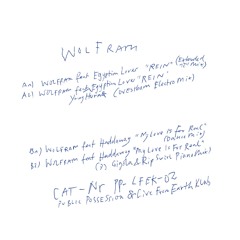 WOLFRAM
A1) WOLFRAM feat Egyptian Lover "REIN" (Extended Mix)
A2) WOLFRAM feat Egyptian Lover "REIN"
(Westbam Electro Mix)
B1) WOLFRAM feat Haddaway "My Love Is For Real" (Dance Mix)
B2) WOLFRAM feat Haddaway "My Love Is For Real"
(DJ Gigola & Rip Swirl Piano Mix)
CAT-Nr PP-LFEK-02
PUBLIC POSSESSION & Live From Earth Klub